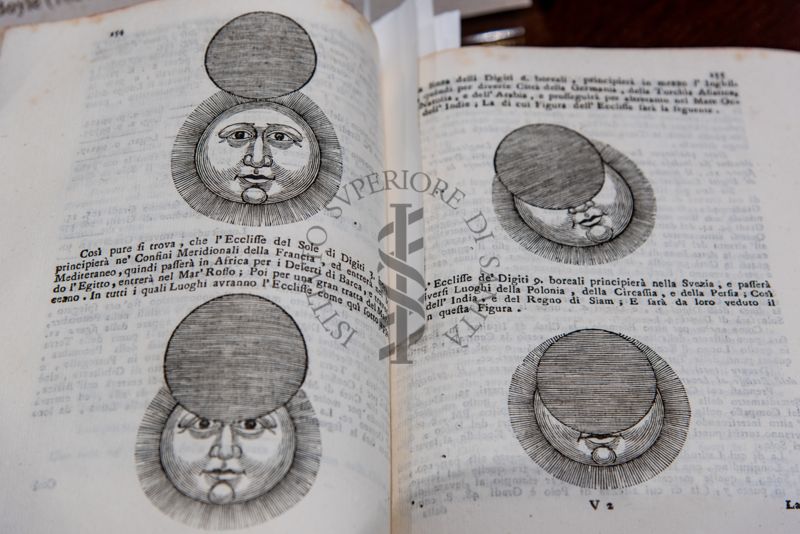 254
Così pure si trova, che l'Ecclisse del Sole di Digiti 3.
principierà ne' Confini Meridionali della Francia, ed entrerà nel
Mediteraneo, quindi passerà in Africa per i Deserti di Barca, e
do l'Egitto, entrerà nel Mar' Rosso; Poi per una gran tratta del Mare
ceano. In tutti i quali Luoghi avranno l'Ecclisse come quì sotto
255
Sfera delli Digiti 6. boreali, principierà in mezzo l'Inghil-
quindi per diverse Città della Germania, della Turchia Asiatica
Natolia, e dell'Arabia, e proseguirà per altretanto nel Mare O-
dell'India; La di cui Figura dell'Ecclisse sarà la seguente.
Ecclisse de' Digiti 9. boreali principierà nella Svezia, e passerà
diversi Luoghi della Polonia, della Circassia, e della Persia; Così
dell'India, e del Regno di Siam; E sarà da loro veduto il
in questa Figura.
V 2
La
ISTITVTO SVPERIORE DI SANITÀ